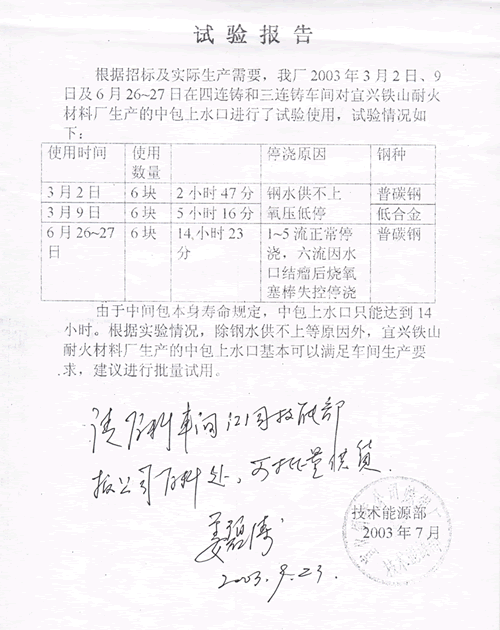 试验报告
根据招标及实际生产需要，我厂 2003 年 3 月 2 日、9
日及 6 月 26~27 日在四连铸和三连铸车间对宜兴铁山耐火
材料厂生产的中包上水口进行了试验使用，试验情况如
下：
使用时间 使用数量 停浇原因 钢种
3 月 2 日 6 块 2 小时 47 分 钢水供不上 普碳钢
3 月 9 日 6 块 5 小时 16 分 氧压低停 低合金
6 月 26~27 日 6 块 14 小时 23 分 1~5 流正常停浇，六流因水口结瘤后烧氧塞棒失控停浇 普碳钢
由于中间包本身寿命规定，中包上水口只能达到 14
小时。根据实验情况，除钢水供不上等原因外，宜兴铁山
耐火材料厂生产的中包上水口基本可以满足车间生产要
求，建议进行批量试用。
请原料车间 技能部
报公司原料处，可批量供货.
技术能源部
2003 年 7 月
2003.9.23.